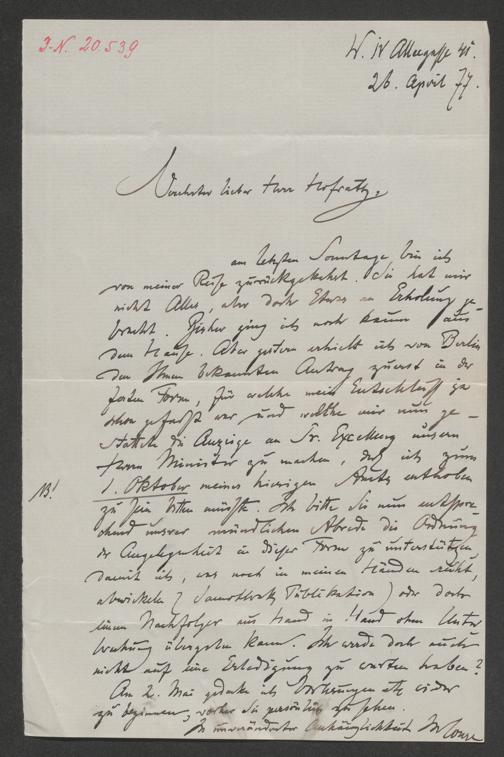 I.N. 20.539
W. IV Alleegasse 41.
26. April 77.
Verehrter lieber Herr Hofrath,
am letzten Sonntage bin ich
von meiner Reise zurückgekehrt. Sie hat mir
nicht Alles, aber doch Etwas an Erholung ge
bracht. Bisher ging ich noch kaum aus
dem Hause. Aber gestern erhielt ich von Berlin
den Ihnen bekannten Antrag zuerst in der
festen Form, für welche mein Entschluss ja
schon gefasst war und welche mir nun ge-
stattete die Anzeige an Sr. Excellenz unsern
Herrn Minister zu machen, dass ich zum
NB!
1. Oktober meines hiesigen Amtes enthoben
zu sein bitten müsste. Ich bitte Sie nun entspre-
chend unsrer mündlichen Abrede die Ordnung
der Angelegenheit in dieser Form zu unterstützen
damit ich, was noch in meinen Händen ruht,
abwickeln (Samothrake Publikation) oder doch
einem Nachfolger aus Hand in Hand ohne Unter
brechung übergeben kann. Ich werde doch auch
nicht auf eine Erledigung zu warten haben?
Am 2. Mai gedenke ich Vorlesungen etc wieder
zu beginnen, vorher Sie persönlich zu sehen.
In unveränderter Anhänglichkeit Ihr Conze